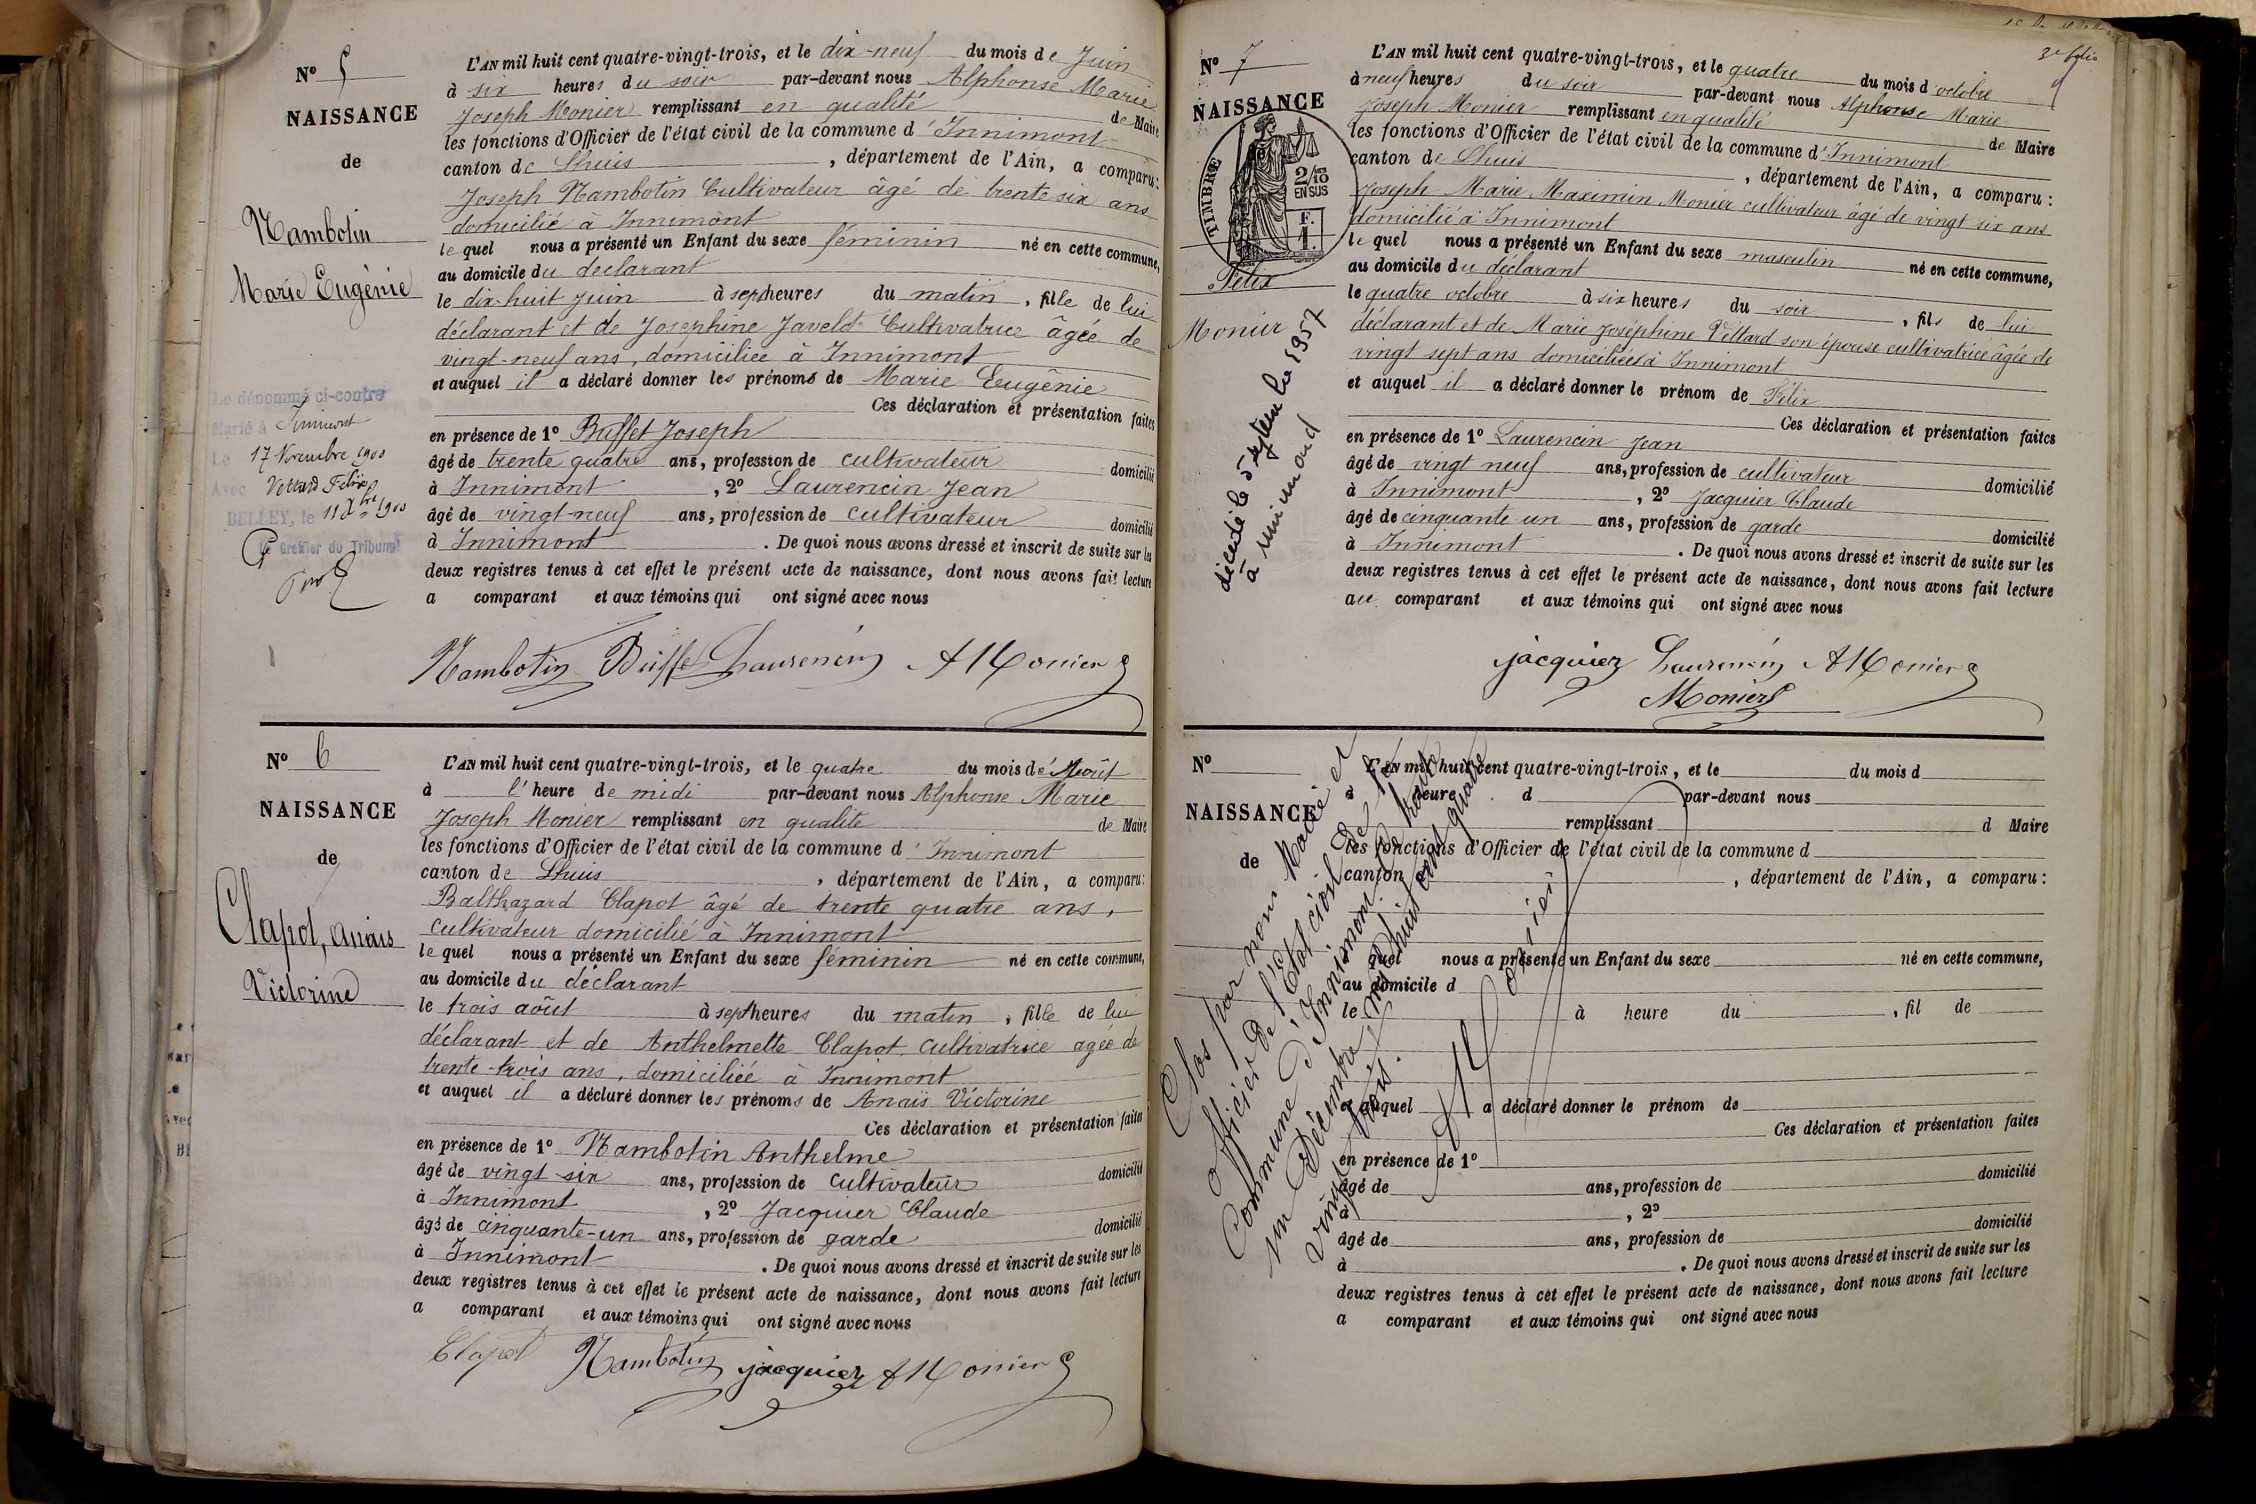 N° 5
NAISSANCE
de
Nambotin
Marie Eugènie
Le dénommé ci-contre
Marié à Innimont
Le 17 Novembre 1900
Avec Vettard Félix
BELLEY, le 11 Xbre 1900
Le Greffier du Tribunal
L'AN mil huit cent quatre-vingt-trois, et le dix-neuf du mois de Juin
à six heures du soir par-devant nous Alphonse Marie
Joseph Monier remplissant en qualité de Maire
les fonctions d'Officier de l'état civil de la commune d'Innimont
canton de Lhuis, département de l'Ain, a comparu:
Joseph Nambotin Cultivateur âgé de trente six ans
domicilié à Innimont
le quel nous a présenté un Enfant du sexe féminin né en cette commune,
au domicile du déclarant
le dix-huit juin à sept heures du matin, fille de lui
déclarant et de Josephine Javelot Cultivatrice âgée de
vingt-neuf ans, domiciliée à Innimont
et auquel il a déclaré donner les prénoms de Marie Eugènie
Ces déclaration et présentation faites
en présence de 1° Buffet Joseph
âgé de trente quatre ans, profession de cultivateur domicilié
à Innimont, 2° Laurencin Jean
âgé de vingt-neuf ans, profession de cultivateur domicilié
à Innimont. De quoi nous avons dressé et inscrit de suite sur les
deux registres tenus à cet effet le présent acte de naissance, dont nous avons fait lecture
a comparant et aux témoins qui ont signé avec nous
Nambotin Buffet Laurencin A Monier
N° 6
NAISSANCE
de
Clapot, Anaïs
Victorine
L'AN mil huit cent quatre-vingt-trois, et le quatre du mois d'Août
à l'heure de midi par-devant nous Alphonse Marie
Joseph Monier remplissant en qualité de Maire
les fonctions d'Officier de l'état civil de la commune d'Innimont
canton de Lhuis, département de l'Ain, a comparu:
Balthazard Clapot âgé de trente quatre ans,
cultivateur domicilié à Innimont
le quel nous a présenté un Enfant du sexe féminin né en cette commune,
au domicile du déclarant
le trois août à sept heures du matin, fille de lui
déclarant et de Anthelmette Clapot cultivatrice agée de
trente-trois ans, domiciliée à Innimont
et auquel il a déclaré donner les prénoms de Anaïs Victorine
Ces déclaration et présentation faites
en présence de 1° Nambotin Anthelme
âgé de vingt six ans, profession de cultivateur domicilié
à Innimont, 2° Jacquier Claude
âgé de cinquante-un ans, profession de garde domicilié
à Innimont. De quoi nous avons dressé et inscrit de suite sur les
deux registres tenus à cet effet le présent acte de naissance, dont nous avons fait lecture
a comparant et aux témoins qui ont signé avec nous
Clapot Nambotin jacquier A Monier
3e folio
N° 7
NAISSANCE
de
TIMBRE
2/10
EN SUS
F.
1.
Félix
Monier
décédé le 5 septembre 1957
à Innimond
L'AN mil huit cent quatre-vingt-trois, et le quatre du mois d'octobre
à neuf heures du soir par-devant nous Alphonse Marie
Joseph Monier remplissant en qualité de Maire
les fonctions d'Officier de l'état civil de la commune d'Innimont
canton de Lhuis, département de l'Ain, a comparu:
Joseph Marie Maximin Monier cultivateur âgé de vingt six ans
domicilié à Innimont
le quel nous a présenté un Enfant du sexe masculin né en cette commune,
au domicile du déclarant
le quatre octobre à six heures du soir, fils de lui
déclarant et de Marie Joséphine Vettard son épouse cultivatrice âgée de
vingt sept ans domiciliés à Innimont
et auquel il a déclaré donner le prénom de Félix
Ces déclaration et présentation faites
en présence de 1° Laurencin Jean
âgé de vingt neuf ans, profession de cultivateur domicilié
à Innimont, 2° Jacquier Claude
âgé de cinquante un ans, profession de garde domicilié
à Innimont. De quoi nous avons dressé et inscrit de suite sur les
deux registres tenus à cet effet le présent acte de naissance, dont nous avons fait lecture
au comparant et aux témoins qui ont signé avec nous
jacquier Laurencin A Monier
Monier
N°
NAISSANCE
de
L'AN mil huit cent quatre-vingt-trois, et le du mois d
à heure d par-devant nous
remplissant d Maire
les fonctions d'Officier de l'état civil de la commune d
canton, département de l'Ain, a comparu:
quel nous a présenté un Enfant du sexe né en cette commune,
au domicile d
le à heure du, fil de
et auquel a déclaré donner le prénom de
Ces déclaration et présentation faites
en présence de 1°
âgé de ans, profession de domicilié
à, 2°
âgé de ans, profession de domicilié
à. De quoi nous avons dressé et inscrit de suite sur les
deux registres tenus à cet effet le présent acte de naissance, dont nous avons fait lecture
a comparant et aux témoins qui ont signé avec nous
Clos par nous Maire et
officier de l'Etat civil de la
Commune d'Innimont, le trente
un Décembre mil huit cent quatre
vingt trois.
A Monier